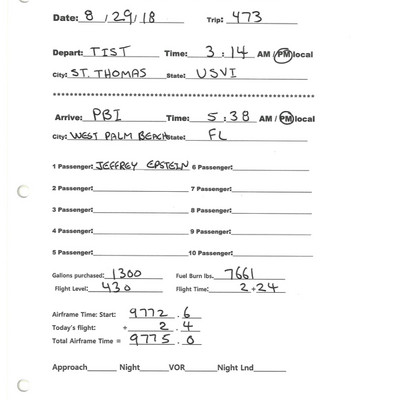 Date: 8/29/18 Trip: 473
Depart: TIST Time: 3:14 AM / PM local
City: ST. THOMAS State: USVI
********************************************************
Arrive: PBI Time: 5:38 AM / PM local
City: WEST PALM BEACH State: FL
1 Passenger: JEFFREY EPSTEIN 6 Passenger:
2 Passenger: 7 Passenger:
3 Passenger: 8 Passenger:
4 Passenger: 9 Passenger:
5 Passenger: 10 Passenger:
Gallons purchased: 1300 Fuel Burn lbs. 7661
Flight Level: 430 Flight Time: 2+24
Airframe Time: Start: 9772.6
Today's flight: + 2.4
Total Airframe Time = 9775.0
Approach Night VOR Night Lnd